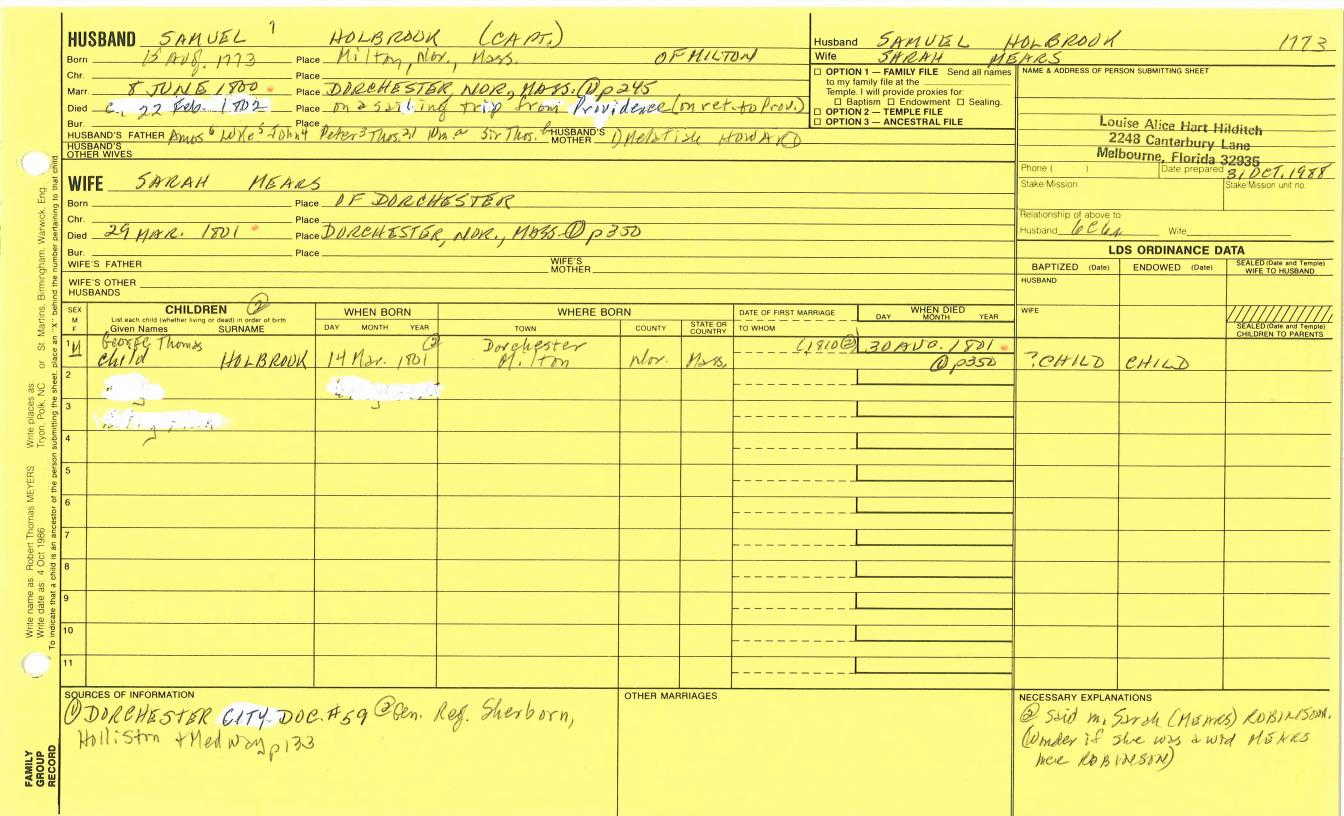 HUSBAND SAMUEL 7 HOLBROOK (CAPT.)
Born 15 Aug. 1773 Place Milton, Nor., Mass. OF MILTON
Chr. Place
Marr. 8 JUNE 1800 Place DORCHESTER, NOR., MASS. ① p245
Died c. 22 Feb. 1802 Place on a sailing trip from Providence (on ret. to Prov.)
Bur. Place
HUSBAND'S FATHER Amos 6 John 4 Peter 3 Thos. 2 Sir Thos. HUSBAND'S MOTHER HOWARD
HUSBAND'S OTHER WIVES
WIFE SARAH MEARS
Born Place OF DORCHESTER
Chr. Place
Died 29 MAR. 1801 Place DORCHESTER, NOR., MASS. ① p350
Bur. Place
WIFE'S FATHER WIFE'S MOTHER
WIFE'S OTHER HUSBANDS
Husband SAMUEL HOLBROOK 1773
Wife SARAH MEARS
OPTION 1 — FAMILY FILE Send all names
to my family file at the
Temple. I will provide proxies for
Baptism Endowment Sealing.
OPTION 2 — TEMPLE FILE
OPTION 3 — ANCESTRAL FILE
NAME & ADDRESS OF PERSON SUBMITTING SHEET
Louise Alice Hart Hilditch
2248 Canterbury Lane
Melbourne, Florida 32935
Phone ( ) Date prepared 31 OCT. 1988
Stake Mission Stake Mission unit no.
Relationship of above to
Husband 6C4x Wife
LDS ORDINANCE DATA
BAPTIZED (Date) ENDOWED (Date) SEALED (Date and Temple) WIFE TO HUSBAND
HUSBAND
WIFE
SEALED (Date and Temple) CHILDREN TO PARENTS
SEX M F CHILDREN ② WHEN BORN WHERE BORN DATE OF FIRST MARRIAGE WHEN DIED
List each child (whether living or dead) in order of birth
Given Names SURNAME DAY MONTH YEAR TOWN COUNTY STATE OR COUNTRY TO WHOM DAY MONTH YEAR
George Thomas ② Dorchester (1810②) 30 AUG. 1801
1 M child HOLBROOK 14 Mar. 1801 Milton Nor. Mass. ① p350 ?CHILD CHILD
2
3
4
5
6
7
8
9
10
11
SOURCES OF INFORMATION
① DORCHESTER CITY DOC. #59 ② Gen. Reg. Sherborn,
Holliston + Medway p133
OTHER MARRIAGES
NECESSARY EXPLANATIONS
② Said m. Sarah (MEARS) ROBINSON.
(Wonder if she was a wid MEARS
nee ROBINSON)
FAMILY GROUP RECORD
Write name as Robert Thomas MEYERS Write places as Tryon, Polk, NC or St Martins, Birmingham, Warwick, Eng
Write date as 4 Oct 1986
To indicate that a child is an ancestor of the person submitting the sheet, place an "X" behind the number pertaining to that child